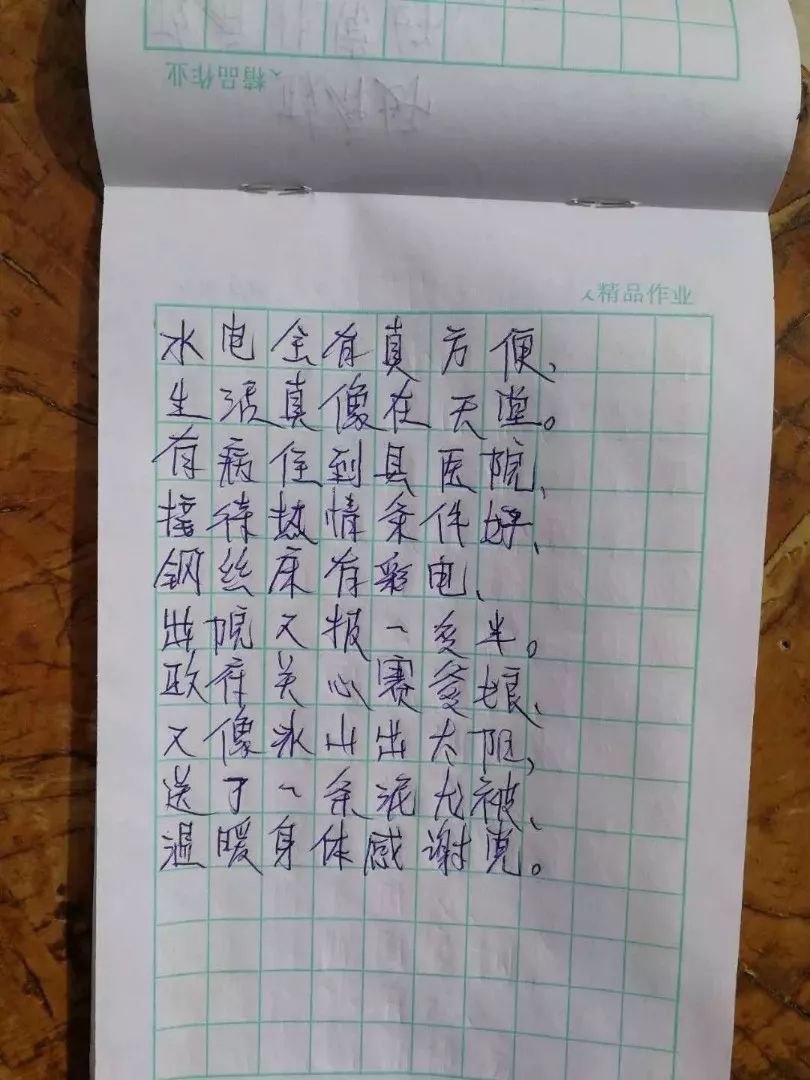 精品作业
精品作业
水电全有真方便、
生活真像在天堂。
有病住到县医院、
接待热情条件好、
钢丝床有彩电、
出院又报一多半。
政府关心赛爹娘、
又像冰山出太阳,
送了一条泥大被、
温暖身体感谢党。